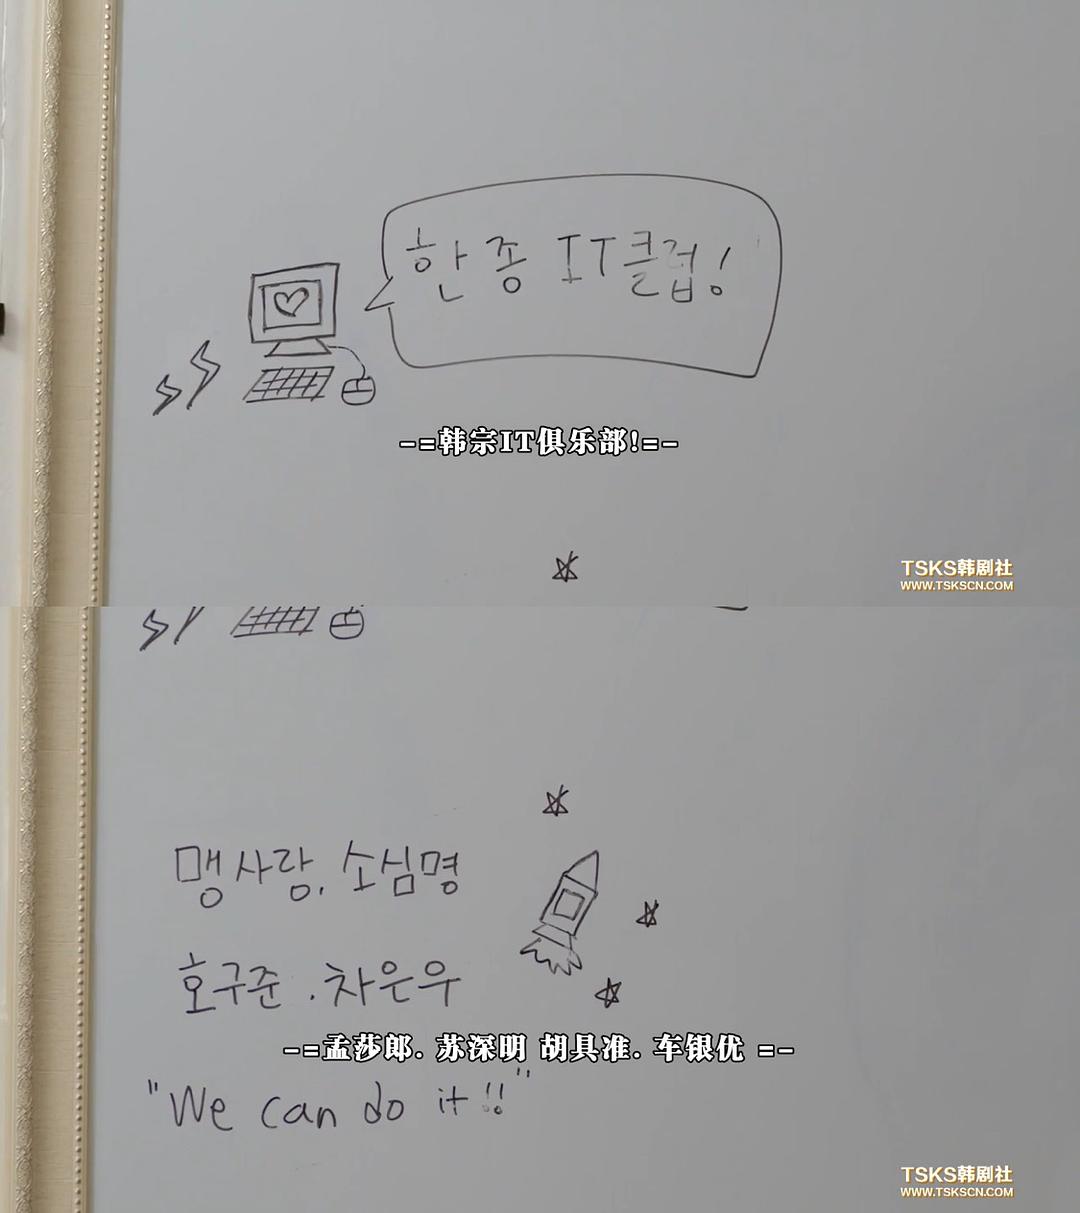 한종 IT클럽!
-=韩宗IT俱乐部!=-
TSKS韩剧社
WWW.TSKSCN.COM
맹사랑, 소심명
호구준 . 차은우
-=孟莎郎. 苏深明 胡具准. 车银优 =-
"We can do it!!"
TSKS韩剧社
WWW.TSKSCN.COM